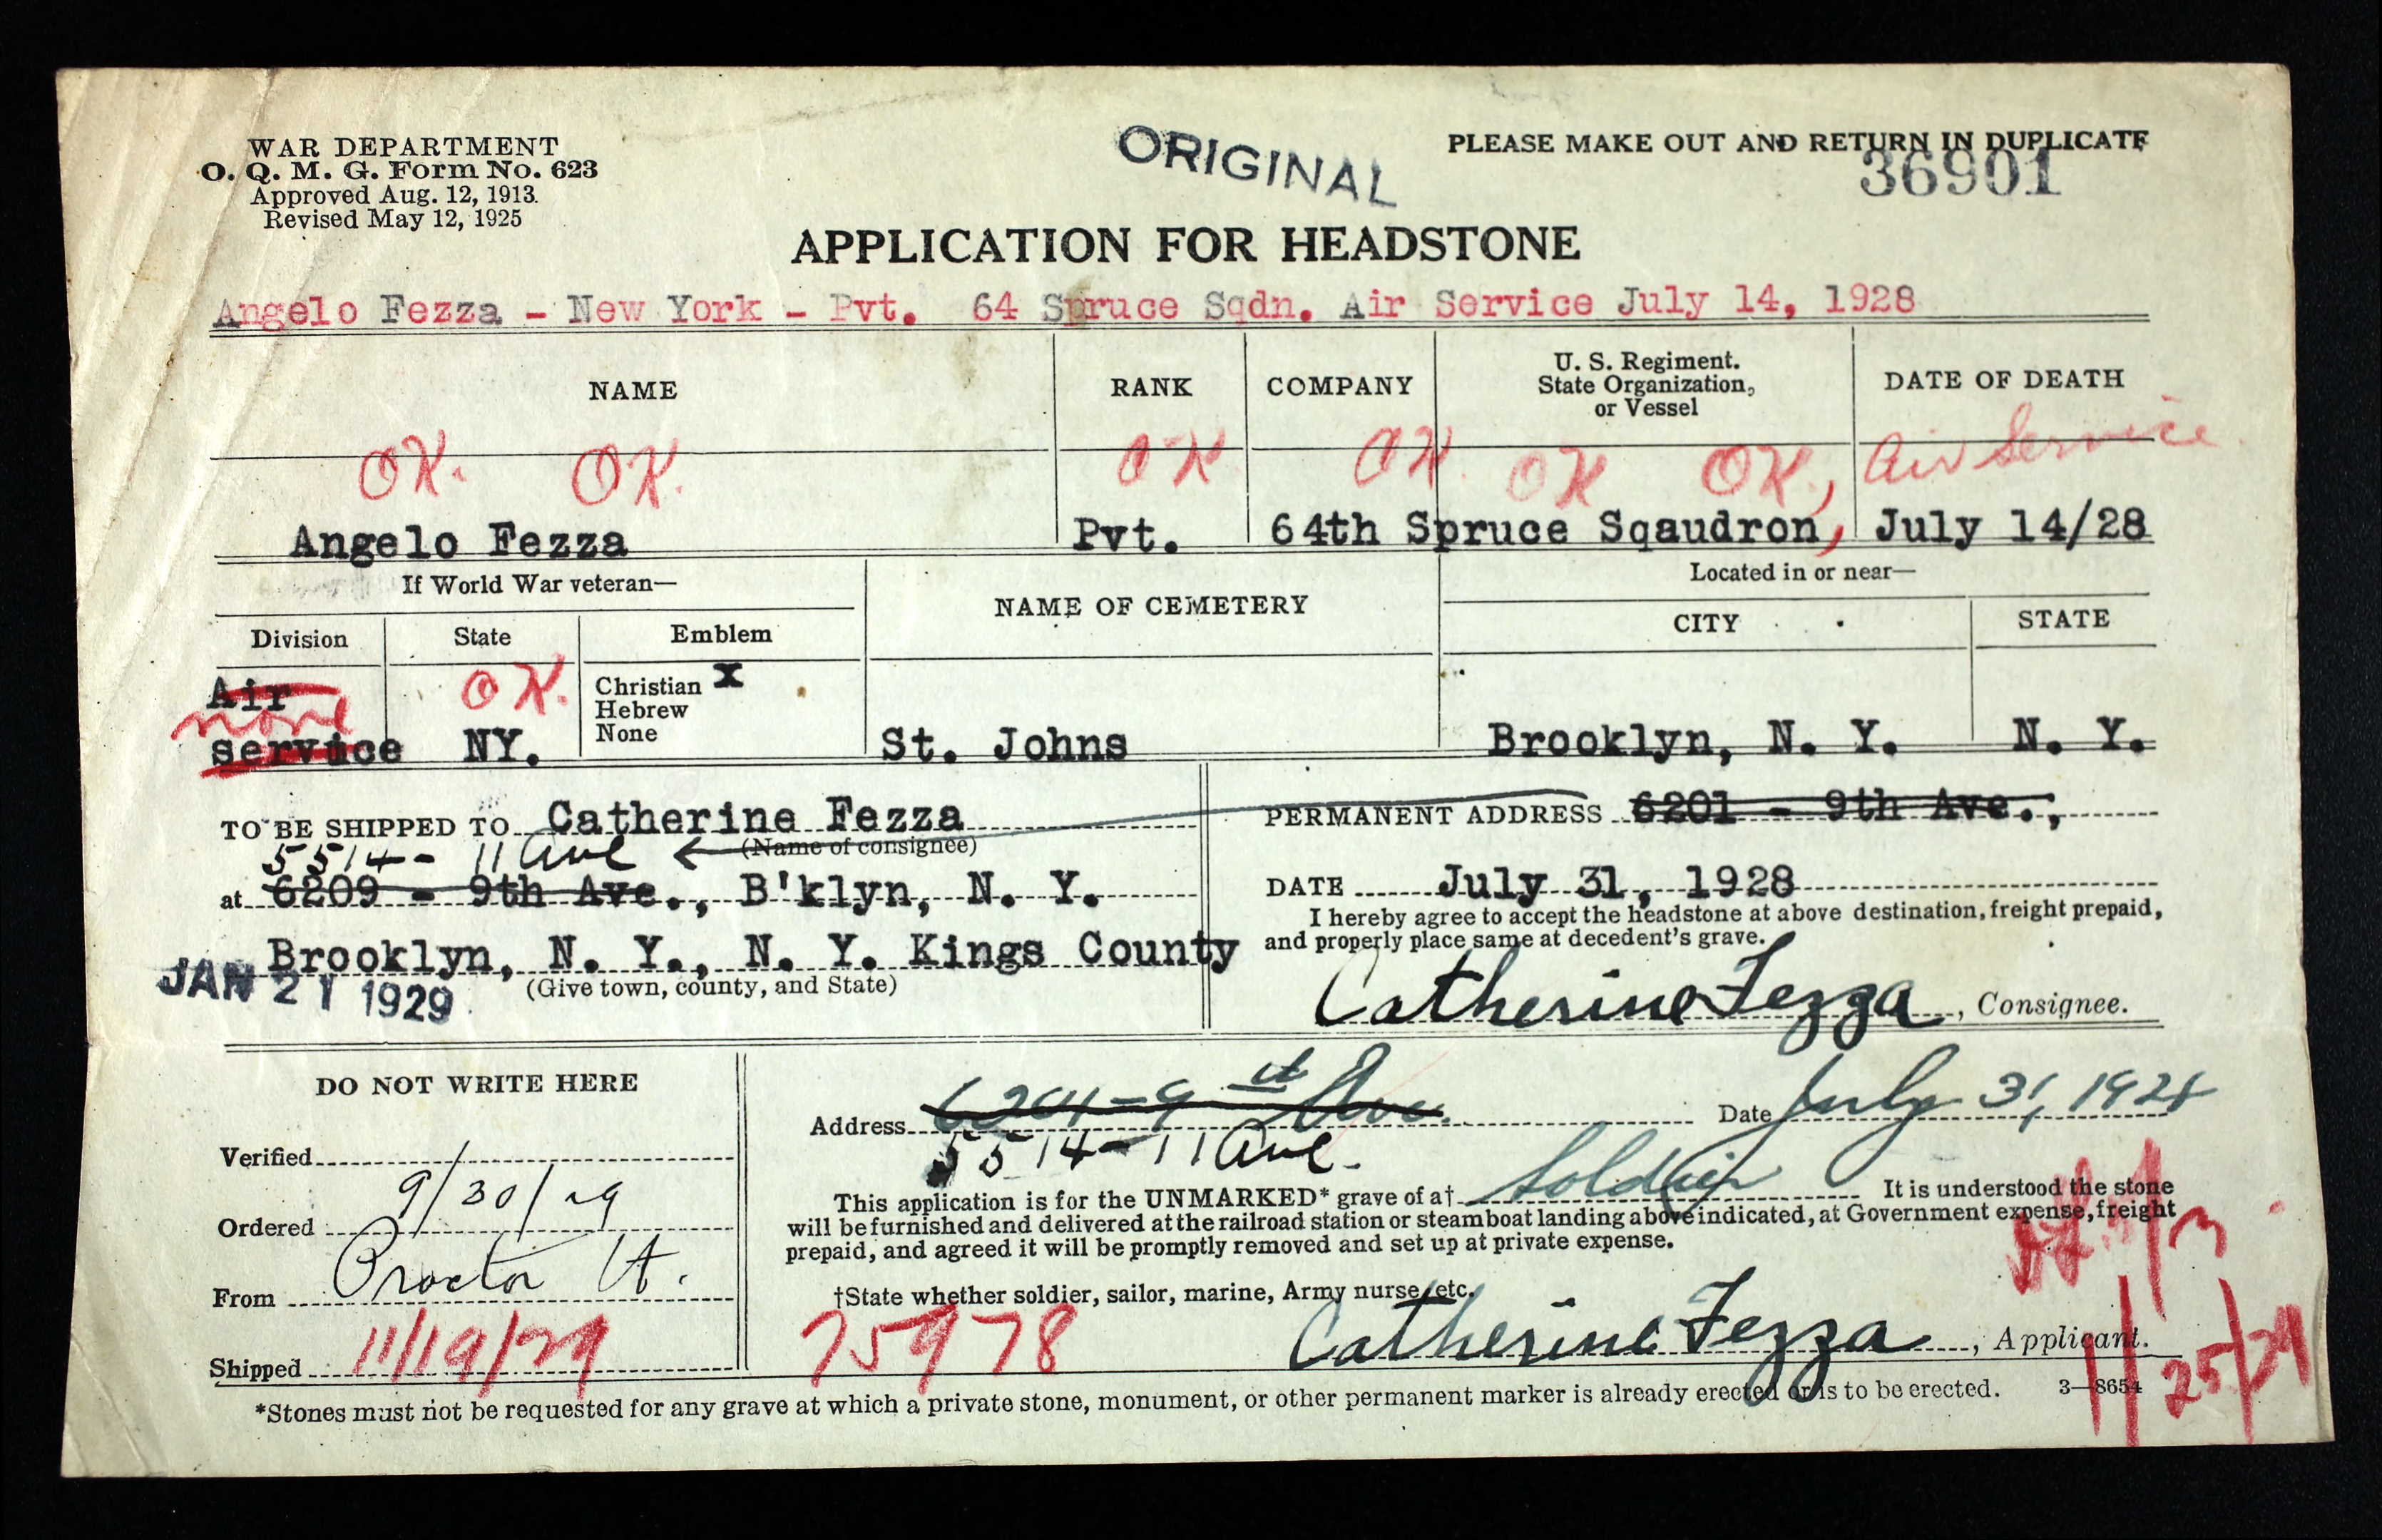 WAR DEPARTMENT
O. Q. M. G. Form No. 623
Approved Aug. 12, 1913.
Revised May 12, 1925
ORIGINAL
PLEASE MAKE OUT AND RETURN IN DUPLICATE
36901
APPLICATION FOR HEADSTONE
Angelo Fezza - New York - Pvt. 64 Spruce Sqdn. Air Service July 14, 1928
NAME
RANK
COMPANY
U. S. Regiment.
State Organization,
or Vessel
DATE OF DEATH
OK. OK. OK OK. OK OK, Air Service
Angelo Fezza Pvt. 64th Spruce Sqaudron, July 14/28
If World War veteran—
NAME OF CEMETERY
Located in or near—
Division State Emblem
CITY STATE
Air
none
service
OK.
NY.
Christian X
Hebrew
None
St. Johns
Brooklyn, N. Y. N. Y.
TO BE SHIPPED TO Catherine Fezza
(Name of consignee)
5514 - 11 Ave
at 6209 - 9th Ave., B'klyn, N. Y.
Brooklyn, N. Y., N. Y. Kings County
(Give town, county, and State)
JAN 21 1929
PERMANENT ADDRESS 6201 - 9th Ave.,
DATE July 31, 1928
I hereby agree to accept the headstone at above destination, freight prepaid,
and properly place same at decedent's grave.
Catherine Fezza, Consignee.
DO NOT WRITE HERE
Verified
9/30/29
Ordered
Proctor Vt.
From
11/19/29
Shipped
Address 6201-9 Ave.
Date July 31, 1928
5514-11 Ave.
This application is for the UNMARKED* grave of a† Soldier It is understood the stone
will be furnished and delivered at the railroad station or steamboat landing above indicated, at Government expense, freight
prepaid, and agreed it will be promptly removed and set up at private expense.
†State whether soldier, sailor, marine, Army nurse, etc.
75978
Catherine Fezza, Applicant.
11/25/29
*Stones must not be requested for any grave at which a private stone, monument, or other permanent marker is already erected or is to be erected.
3—8654